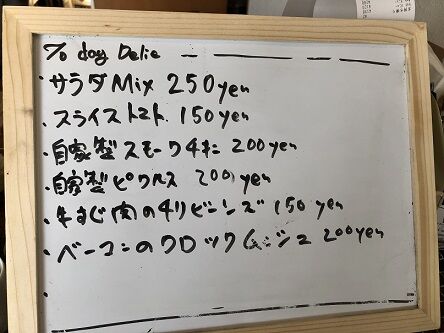 To day Delie
・サラダMix 250yen
・スライストマト 150yen
・自家製スモークチキン 200yen
・自家製ピクルス 200yen
・牛すじ肉のチリビーンズ 150yen
・ベーコンのクロックムッシュ 200yen
・